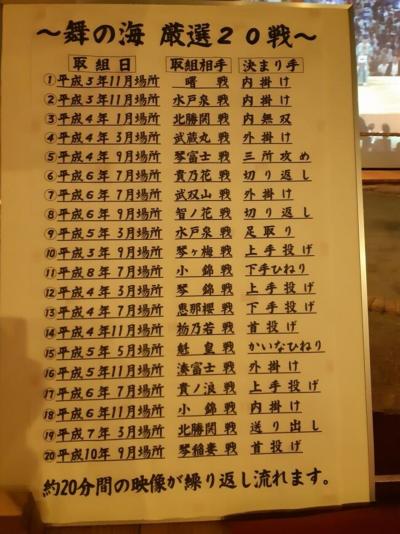 ～舞の海 厳選２０戦～
取組日 取組相手 決まり手
①平成３年11月場所 曙戦 内掛け
②平成３年11月場所 水戸泉戦 内掛け
③平成４年１月場所 北勝鬨戦 内無双
④平成４年３月場所 武蔵丸戦 外掛け
⑤平成４年９月場所 琴富士戦 三所攻め
⑥平成６年７月場所 貴乃花戦 切り返し
⑦平成６年７月場所 武双山戦 外掛け
⑧平成６年９月場所 智ノ花戦 切り返し
⑨平成５年３月場所 水戸泉戦 足取り
⑩平成３年９月場所 琴ヶ梅戦 上手投げ
⑪平成８年７月場所 小錦戦 下手ひねり
⑫平成４年３月場所 琴錦戦 上手投げ
⑬平成４年７月場所 恵那櫻戦 下手投げ
⑭平成４年11月場所 栃乃若戦 首投げ
⑮平成５年５月場所 魁皇戦 かいなひねり
⑯平成５年11月場所 湊富士戦 外掛け
⑰平成６年７月場所 貴ノ浪戦 上手投げ
⑱平成６年11月場所 小錦戦 内掛け
⑲平成７年３月場所 北勝鬨戦 送り出し
⑳平成10年９月場所 琴稲妻戦 首投げ
約20分間の映像が繰り返し流れます。